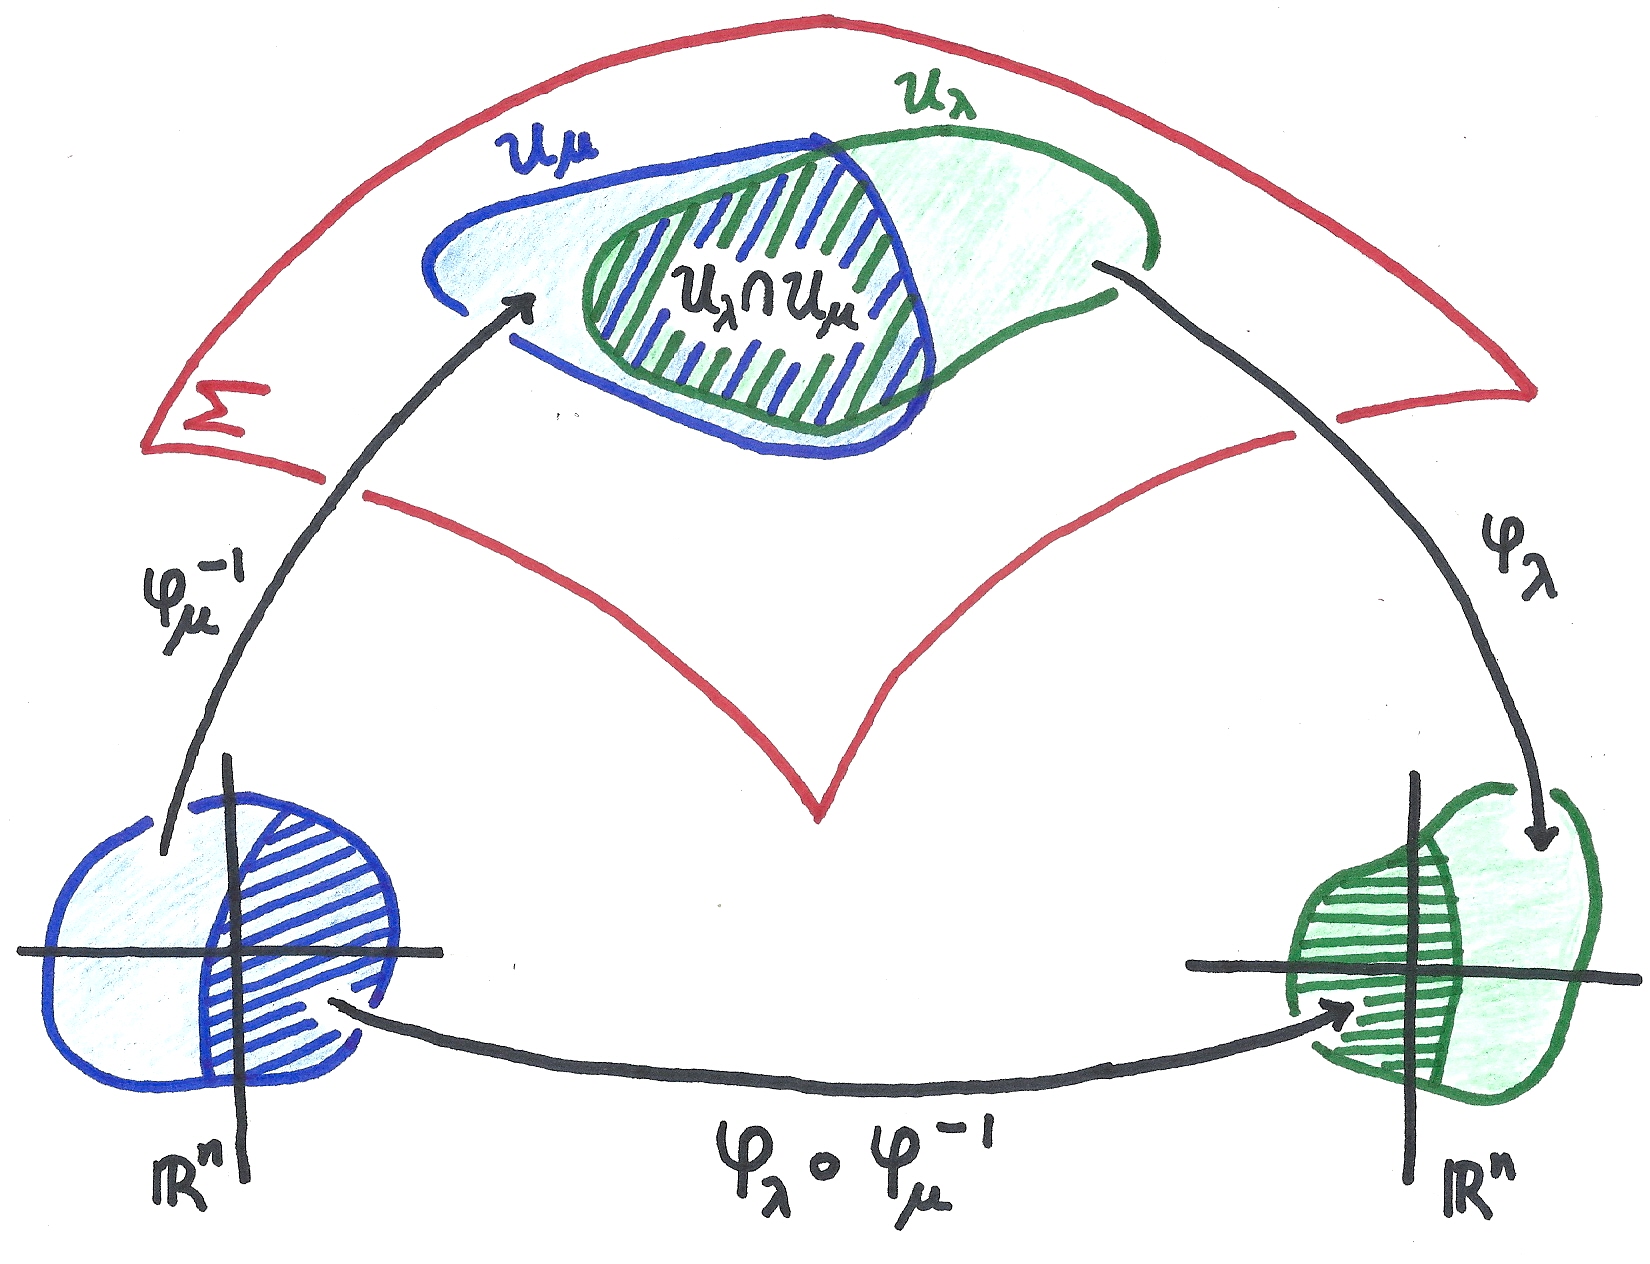 𝒰λ
𝒰μ
𝒰λ∩𝒰μ
Σ
φμ⁻¹
φλ
ℝⁿ
φλ∘φμ⁻¹
ℝⁿ